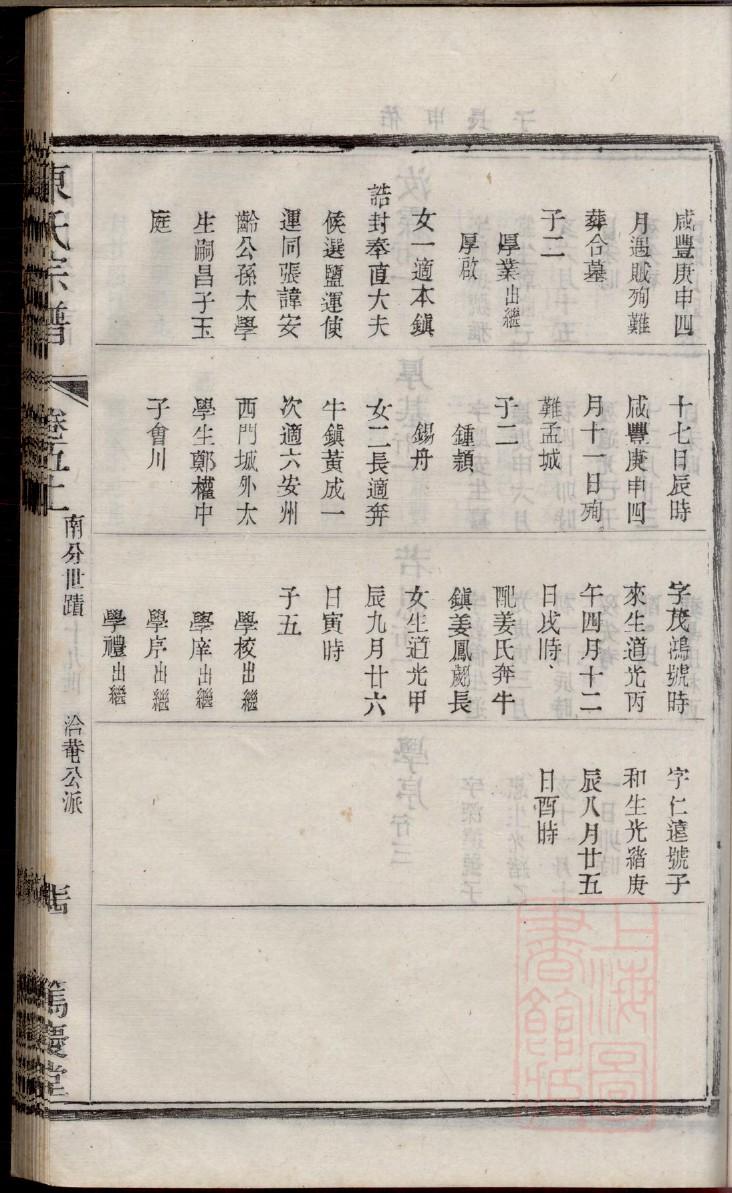 咸豐庚申四
月遇賊殉難
葬合墓
子二
厚業出繼
厚啟
女一適本鎮
誥封奉直大夫
候選鹽運使
運同張諱安
齡公孫太學
生嗣昌子玉
庭
十七日辰時
咸豐庚申四
月十一日殉
難孟城
子二
鍾穎
錫丹
女二長適奔
牛鎮黃成一
次適六安州
西門城外太
學生鄭權中
子會川
字茂鴻號時
來生道光丙
午四月十二
日戌時
配姜氏奔牛
鎮姜鳳翽長
女生道光甲
辰九月廿六
日寅時
子五
學校出繼
學庠出繼
學序出繼
學禮出繼
字仁遠號子
和生光緒庚
辰八月廿五
日酉時
氏宗譜
卷五十
南分世蹟
洽菴公派
篤慶堂
上海圖書館藏